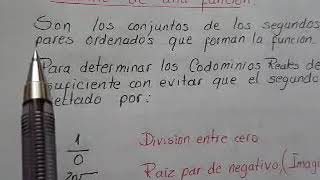 de una función.
Son los conjuntos de los segundos
pares ordenados que forman la función
Para determinar los Codominios Reales de
suficiente con evitar que el segundo
fectado por:
1
0
Division entre cero
Raíz par de negativo (Imag